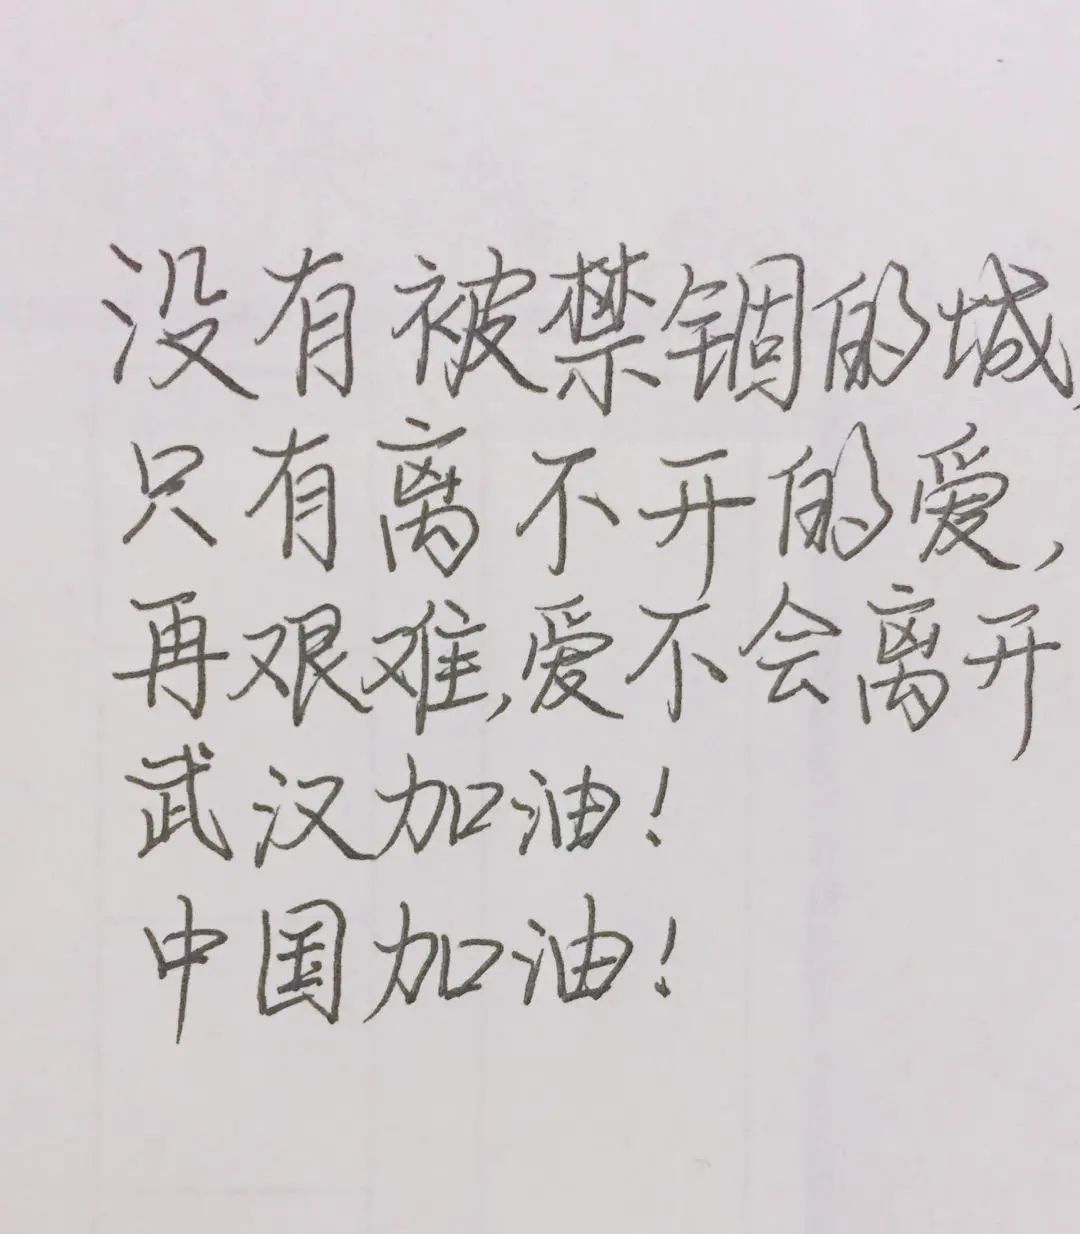 没有被禁锢的城,
只有离不开的爱,
再艰难,爱不会离开
武汉加油!
中国加油!